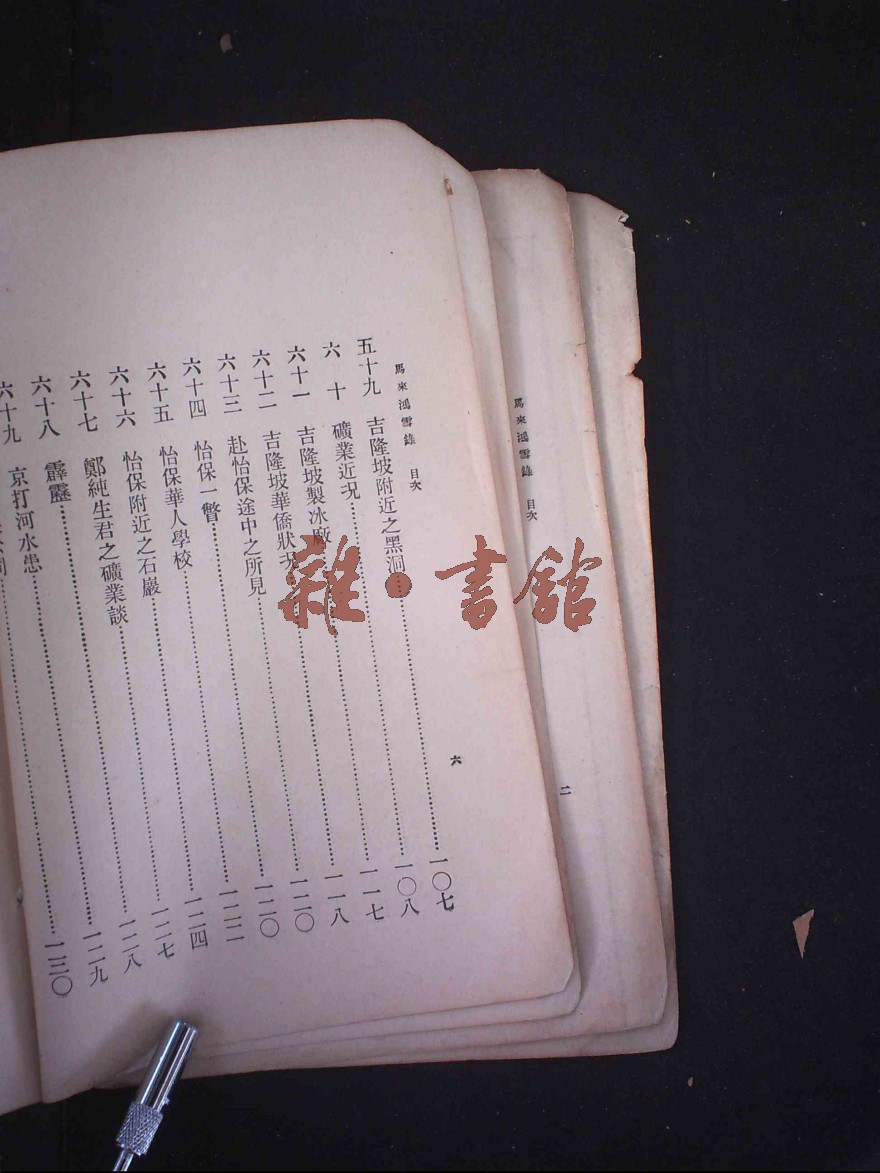 馬來鴻雪錄 目次
六
五十九 吉隆坡附近之黑洞……一〇七
六十 礦業近況……一〇八
六十一 吉隆坡製冰廠……一一七
六十二 吉隆坡華僑狀況……一一八
六十三 赴怡保途中之所見……一二〇
六十四 怡保一瞥……一二〇
六十五 怡保華人學校……一二二
六十六 怡保附近之石巖……一二四
六十七 鄭純生君之礦業談……一二七
六十八 霹靂……一二八
六十九 京打河水患……一二九
……一三〇
馬來鴻雪錄 目次
二
雜·書館